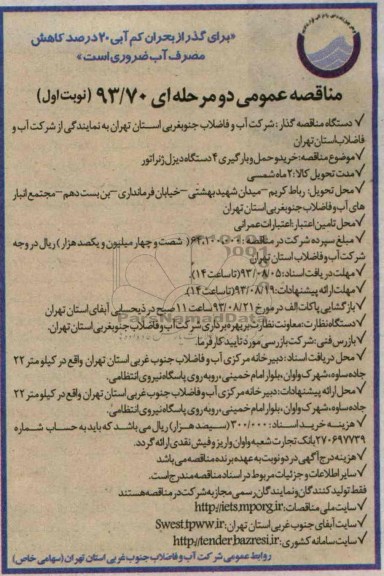 «برای گذر از بحران کم آبی ۲۰ درصد کاهش
مصرف آب ضروری است»
مناقصه عمومی دو مرحله ای ۹۳/۷۰ (نوبت اول)
✓ دستگاه مناقصه گذار: شرکت آب و فاضلاب جنوبغربی استان تهران به نمایندگی از شرکت آب و
فاضلاب استان تهران
✓ موضوع مناقصه: خرید و حمل و بارگیری ۴ دستگاه دیزل ژنراتور
✓ مدت تحویل کالا: ۲ ماه شمسی
✓ محل تحویل: رباط کریم - میدان شهید بهشتی - خیابان فرمانداری - بن بست دهم - مجتمع انبار
های آب و فاضلاب جنوبغربی استان تهران
✓ محل تامین اعتبار: اعتبارات عمرانی
✓ مبلغ سپرده شرکت در مناقصه: ۶۴.۱۰۰.۰۰۰ (شصت و چهار میلیون و یکصد هزار) ریال در وجه
شرکت آب و فاضلاب استان تهران
✓ مهلت دریافت اسناد: ۹۳/۰۸/۰۵ (تا ساعت ۱۴).
✓ مهلت ارائه پیشنهادات: ۹۳/۰۸/۱۹ (تا ساعت ۱۴).
✓ بازگشایی پاکات الف در مورخ ۹۳/۰۸/۲۱ ساعت ۱۱ صبح در ذیحسابی آبفای استان تهران
✓ دستگاه نظارت: معاونت نظارت بر بهره برداری شرکت آب و فاضلاب جنوبغربی استان تهران.
✓ بازرس فنی: شرکت بازرسی مورد تایید کارفرما.
✓ محل دریافت اسناد: دبیرخانه مرکزی آب و فاضلاب جنوب غربی استان تهران واقع در کیلومتر ۲۲
جاده ساوه، شهرک واوان، بلوار امام خمینی، روبه روی پاسگاه نیروی انتظامی.
✓ محل ارائه پیشنهادات: دبیرخانه مرکزی آب و فاضلاب جنوب غربی استان تهران واقع در کیلومتر ۲۲
جاده ساوه، شهرک واوان، بلوار امام خمینی، روبه روی پاسگاه نیروی انتظامی.
✓ هزینه خرید اسناد: ۳۰۰/۰۰۰ (سیصد هزار) ریال می باشد که باید به حساب شماره
۲۷۰۶۹۷۷۳۹ بانک تجارت شعبه واوان واریز و فیش نقدی ارائه گردد.
✓ هزینه درج آگهی در دو نوبت به عهده برنده مناقصه می باشد
✓ سایر اطلاعات و جزئیات مربوط در اسناد مناقصه مندرج است.
فقط تولید کنندگان و نمایندگان رسمی مجاز به شرکت در مناقصه هستند
✓ سایت ملی مناقصات: http://iets.mporg.ir
✓ سایت آبفای جنوب غربی استان تهران: Swest.tpww.ir
✓ سایت سامانه کشوری: http://tender.bazresi.ir
روابط عمومی شرکت آب و فاضلاب جنوب غربی استان تهران (سهامی خاص)
ParsNamadData